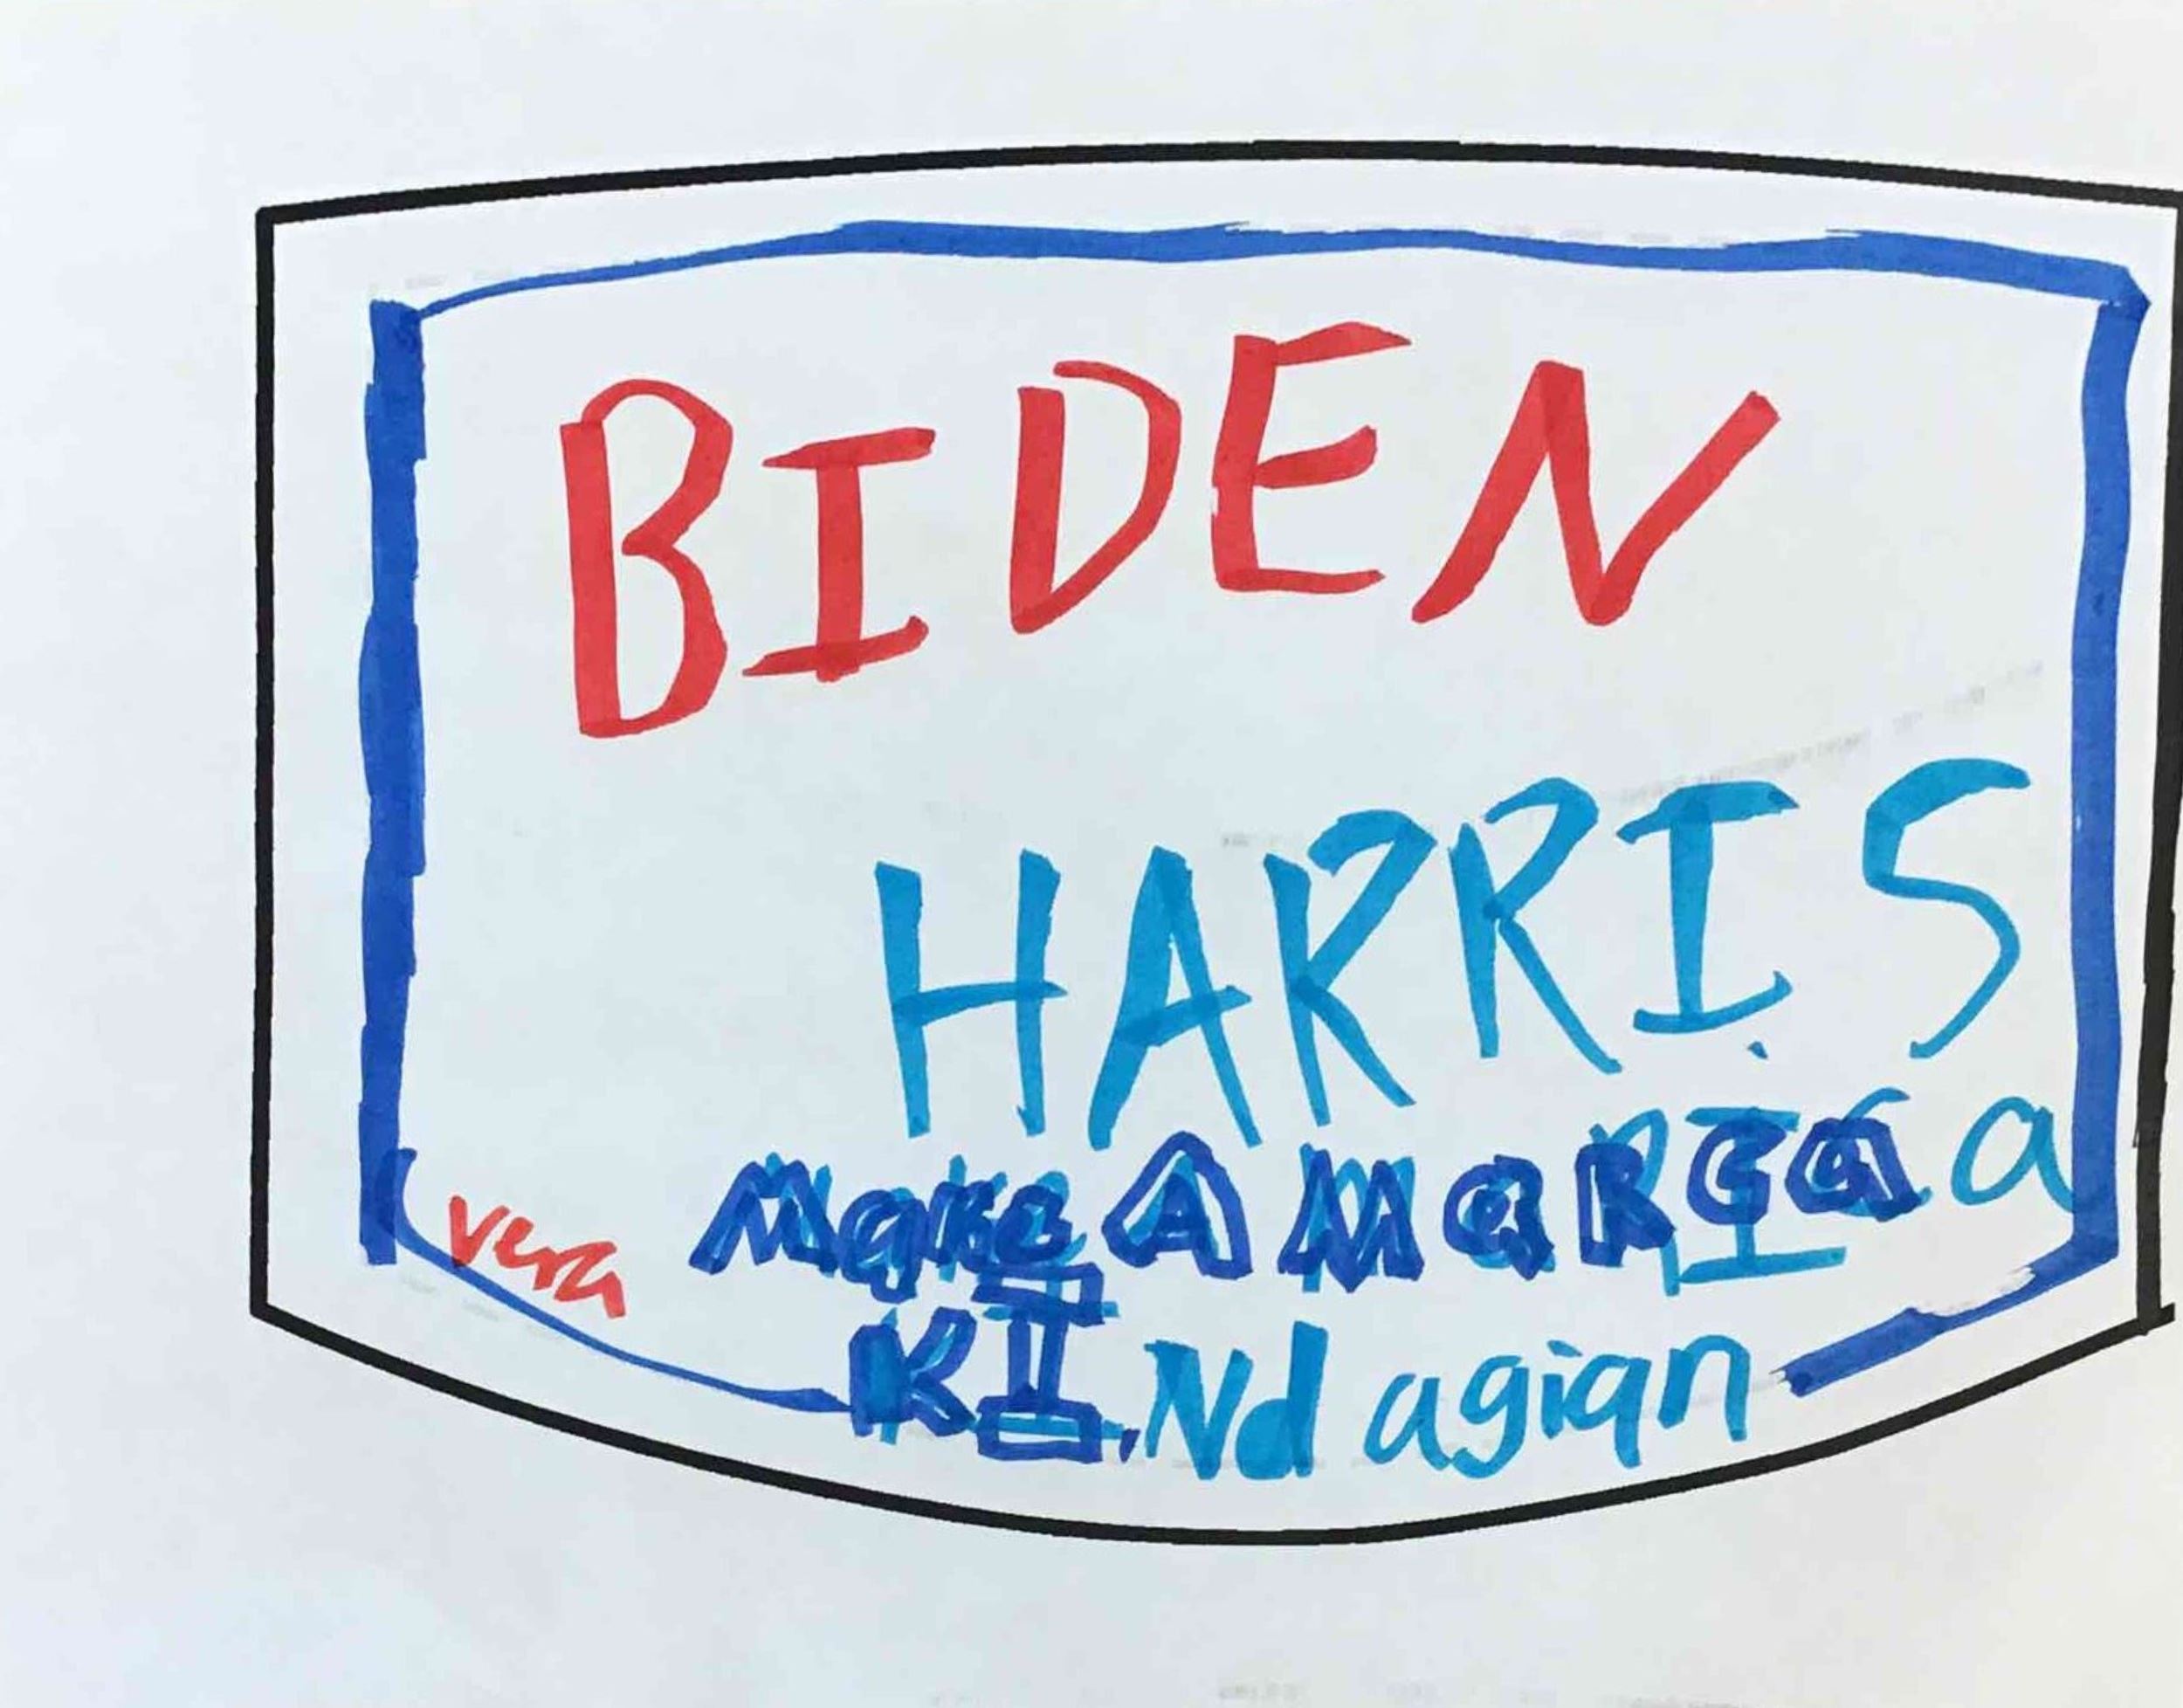 BIDEN
HARRIS
vera
Make AMeRICa
KINd agian